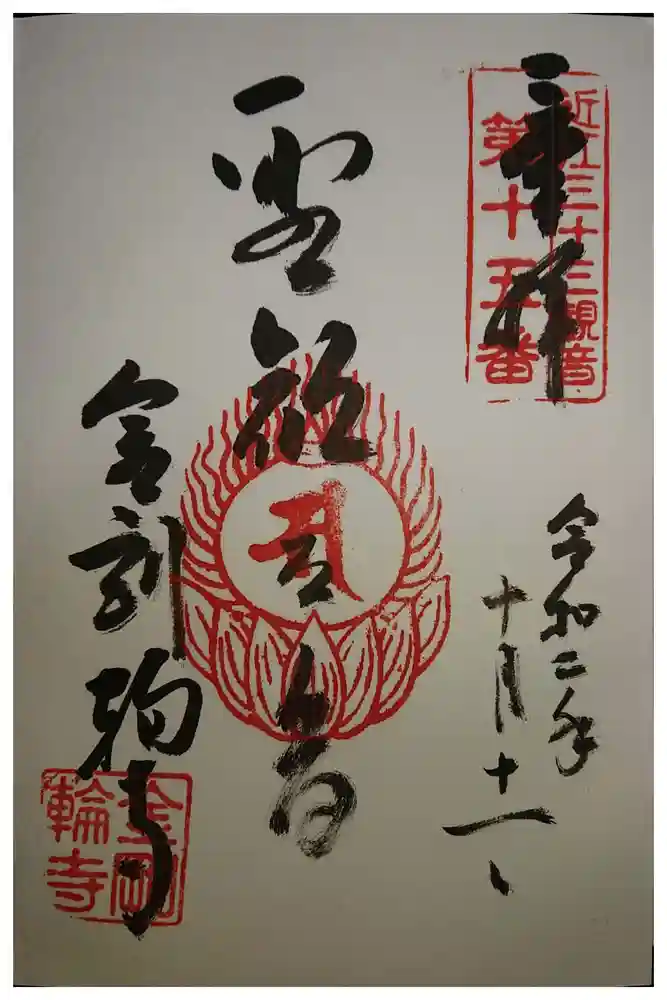 奉拝
近江三十三観音
第十五番
令和二年
十月十一日
聖観世音
金剛輪寺
金剛
輪寺